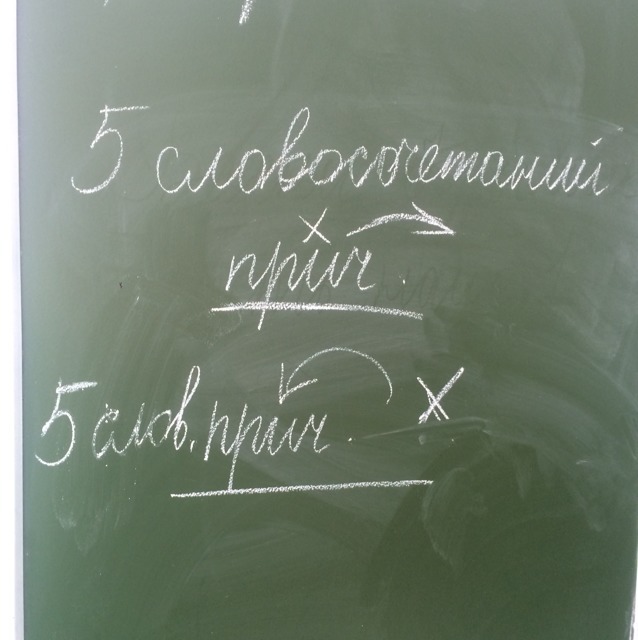 5 словосочетаний
x
прич.
5 слов. прич. x